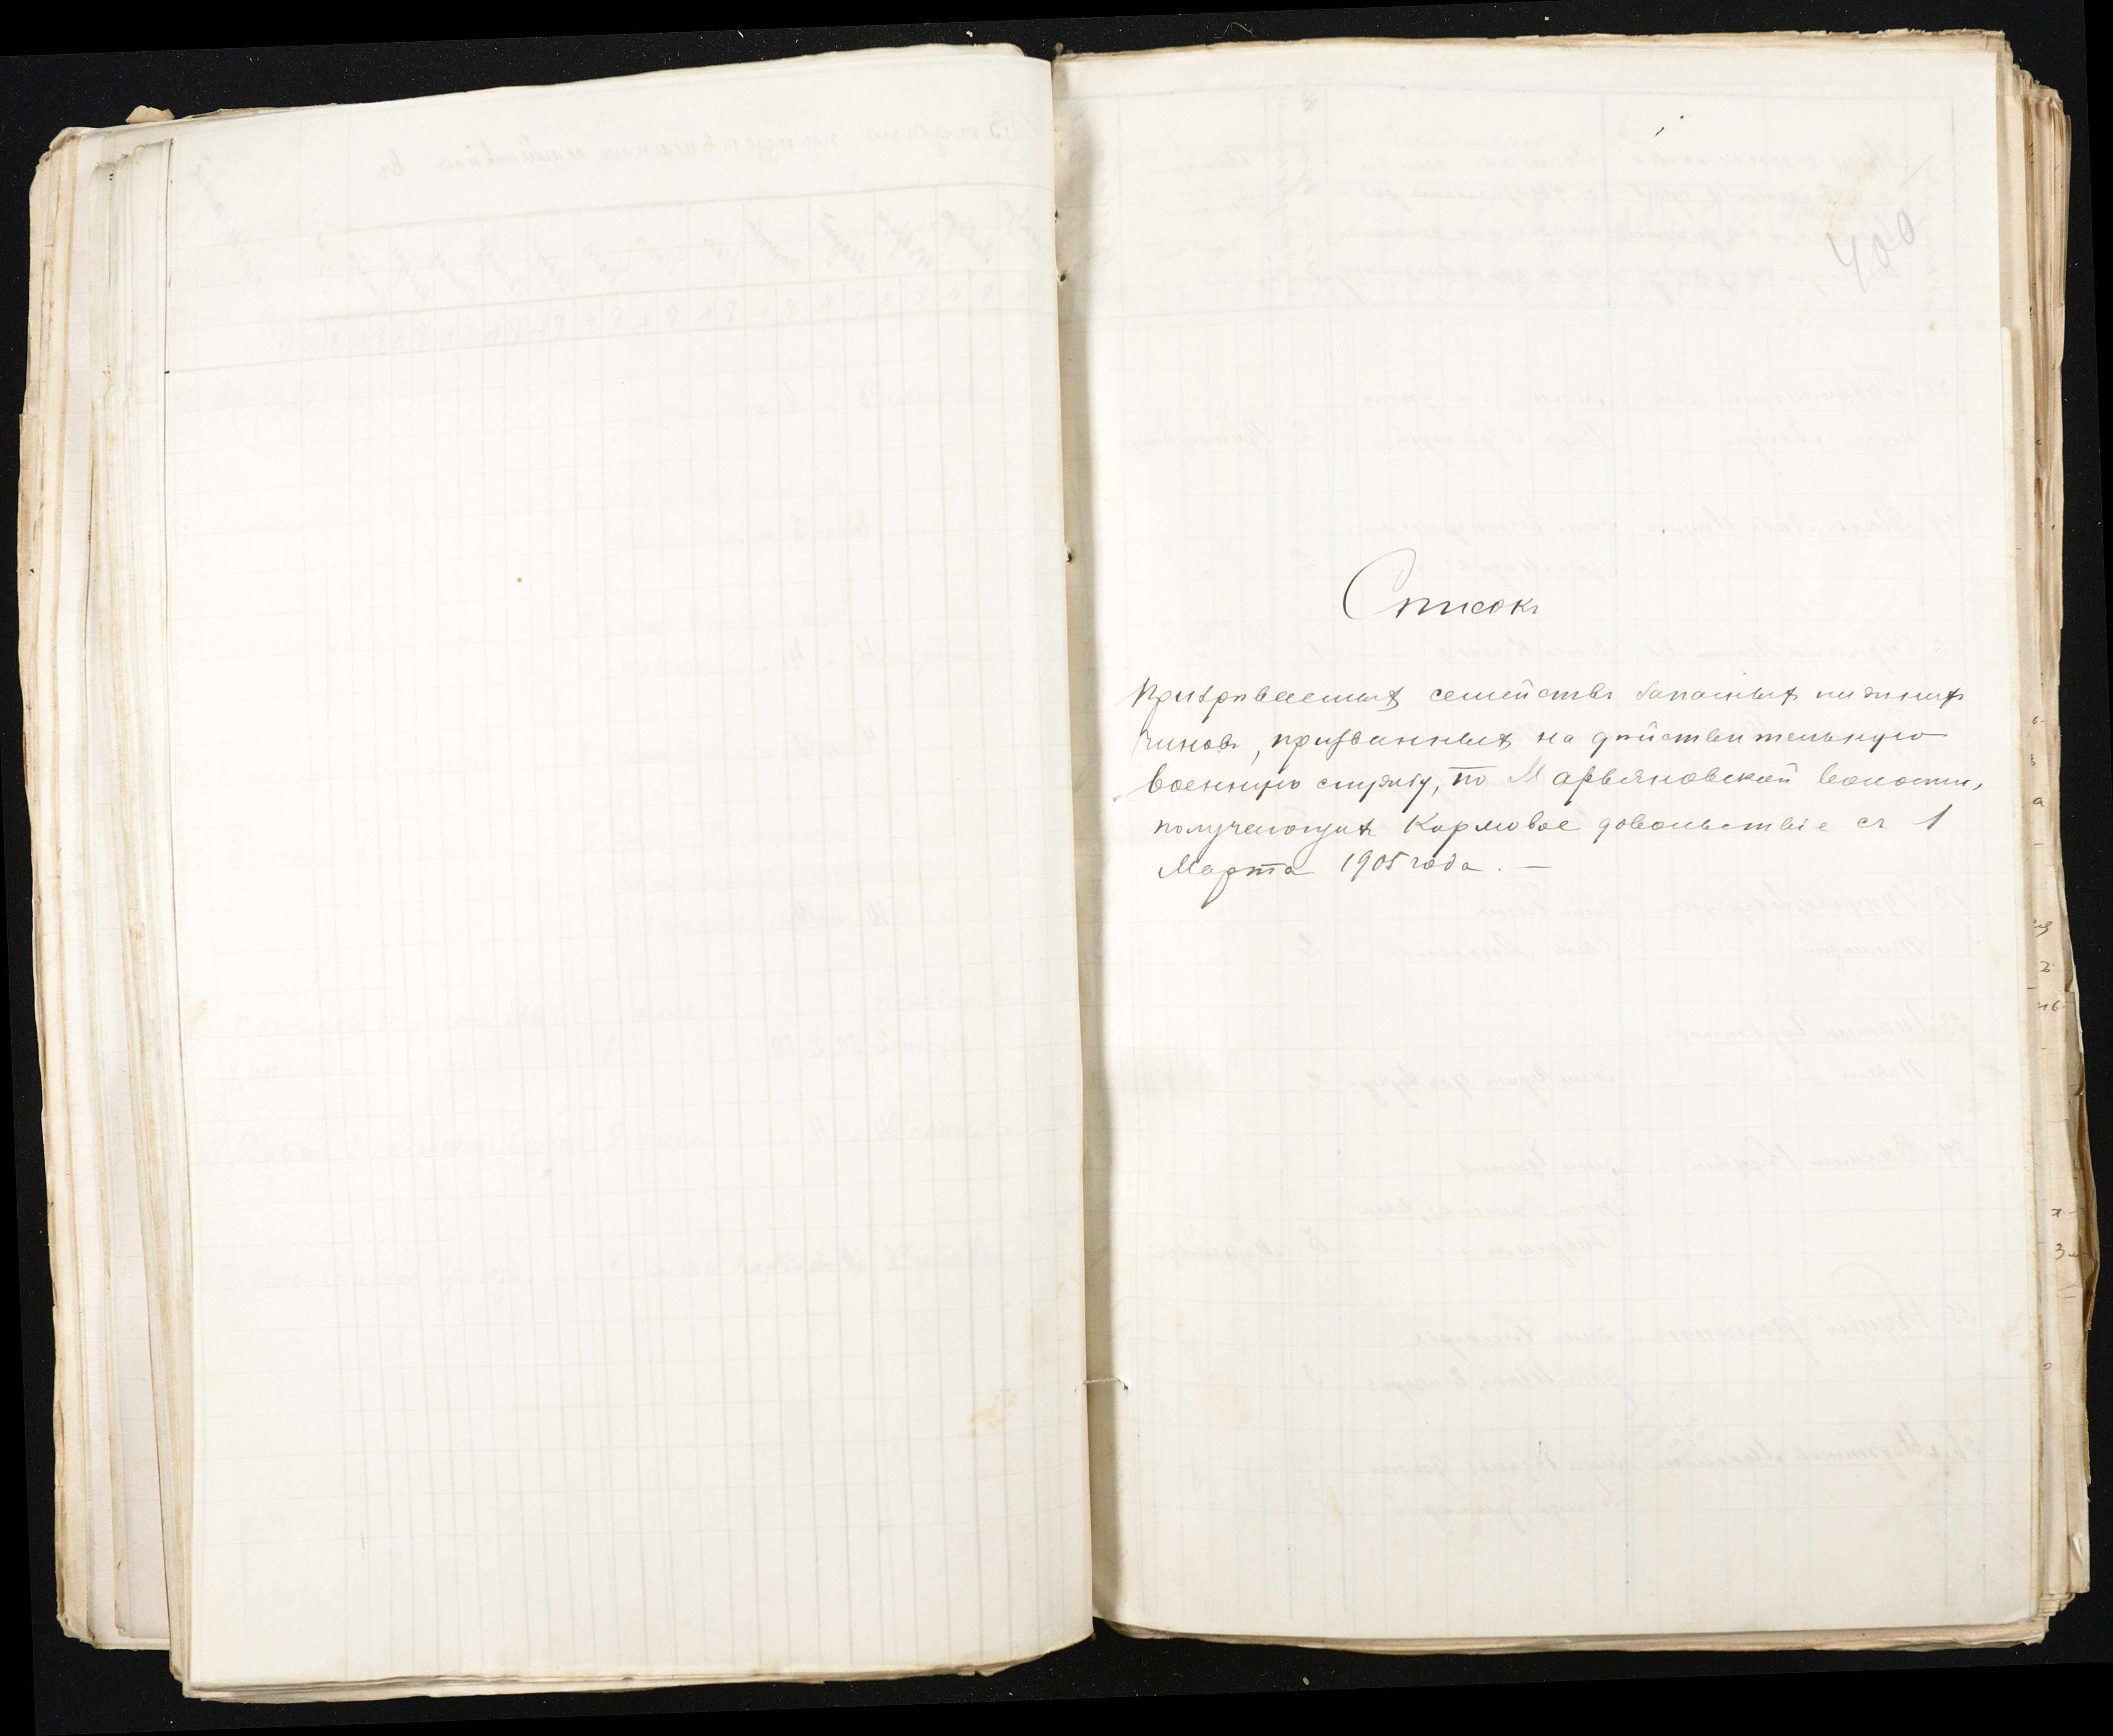 400
Списокъ
призрѣваемыхъ семействъ запасныхъ нижнихъ
чиновъ, призванныхъ на дѣйствительную
военную службу, по Марьяновской волости,
получающихъ кормовое довольствіе съ 1
Марта 1905 года. —